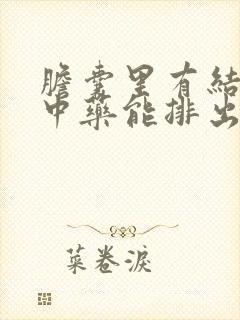 膽囊里有結
中藥能排出
菜卷淚